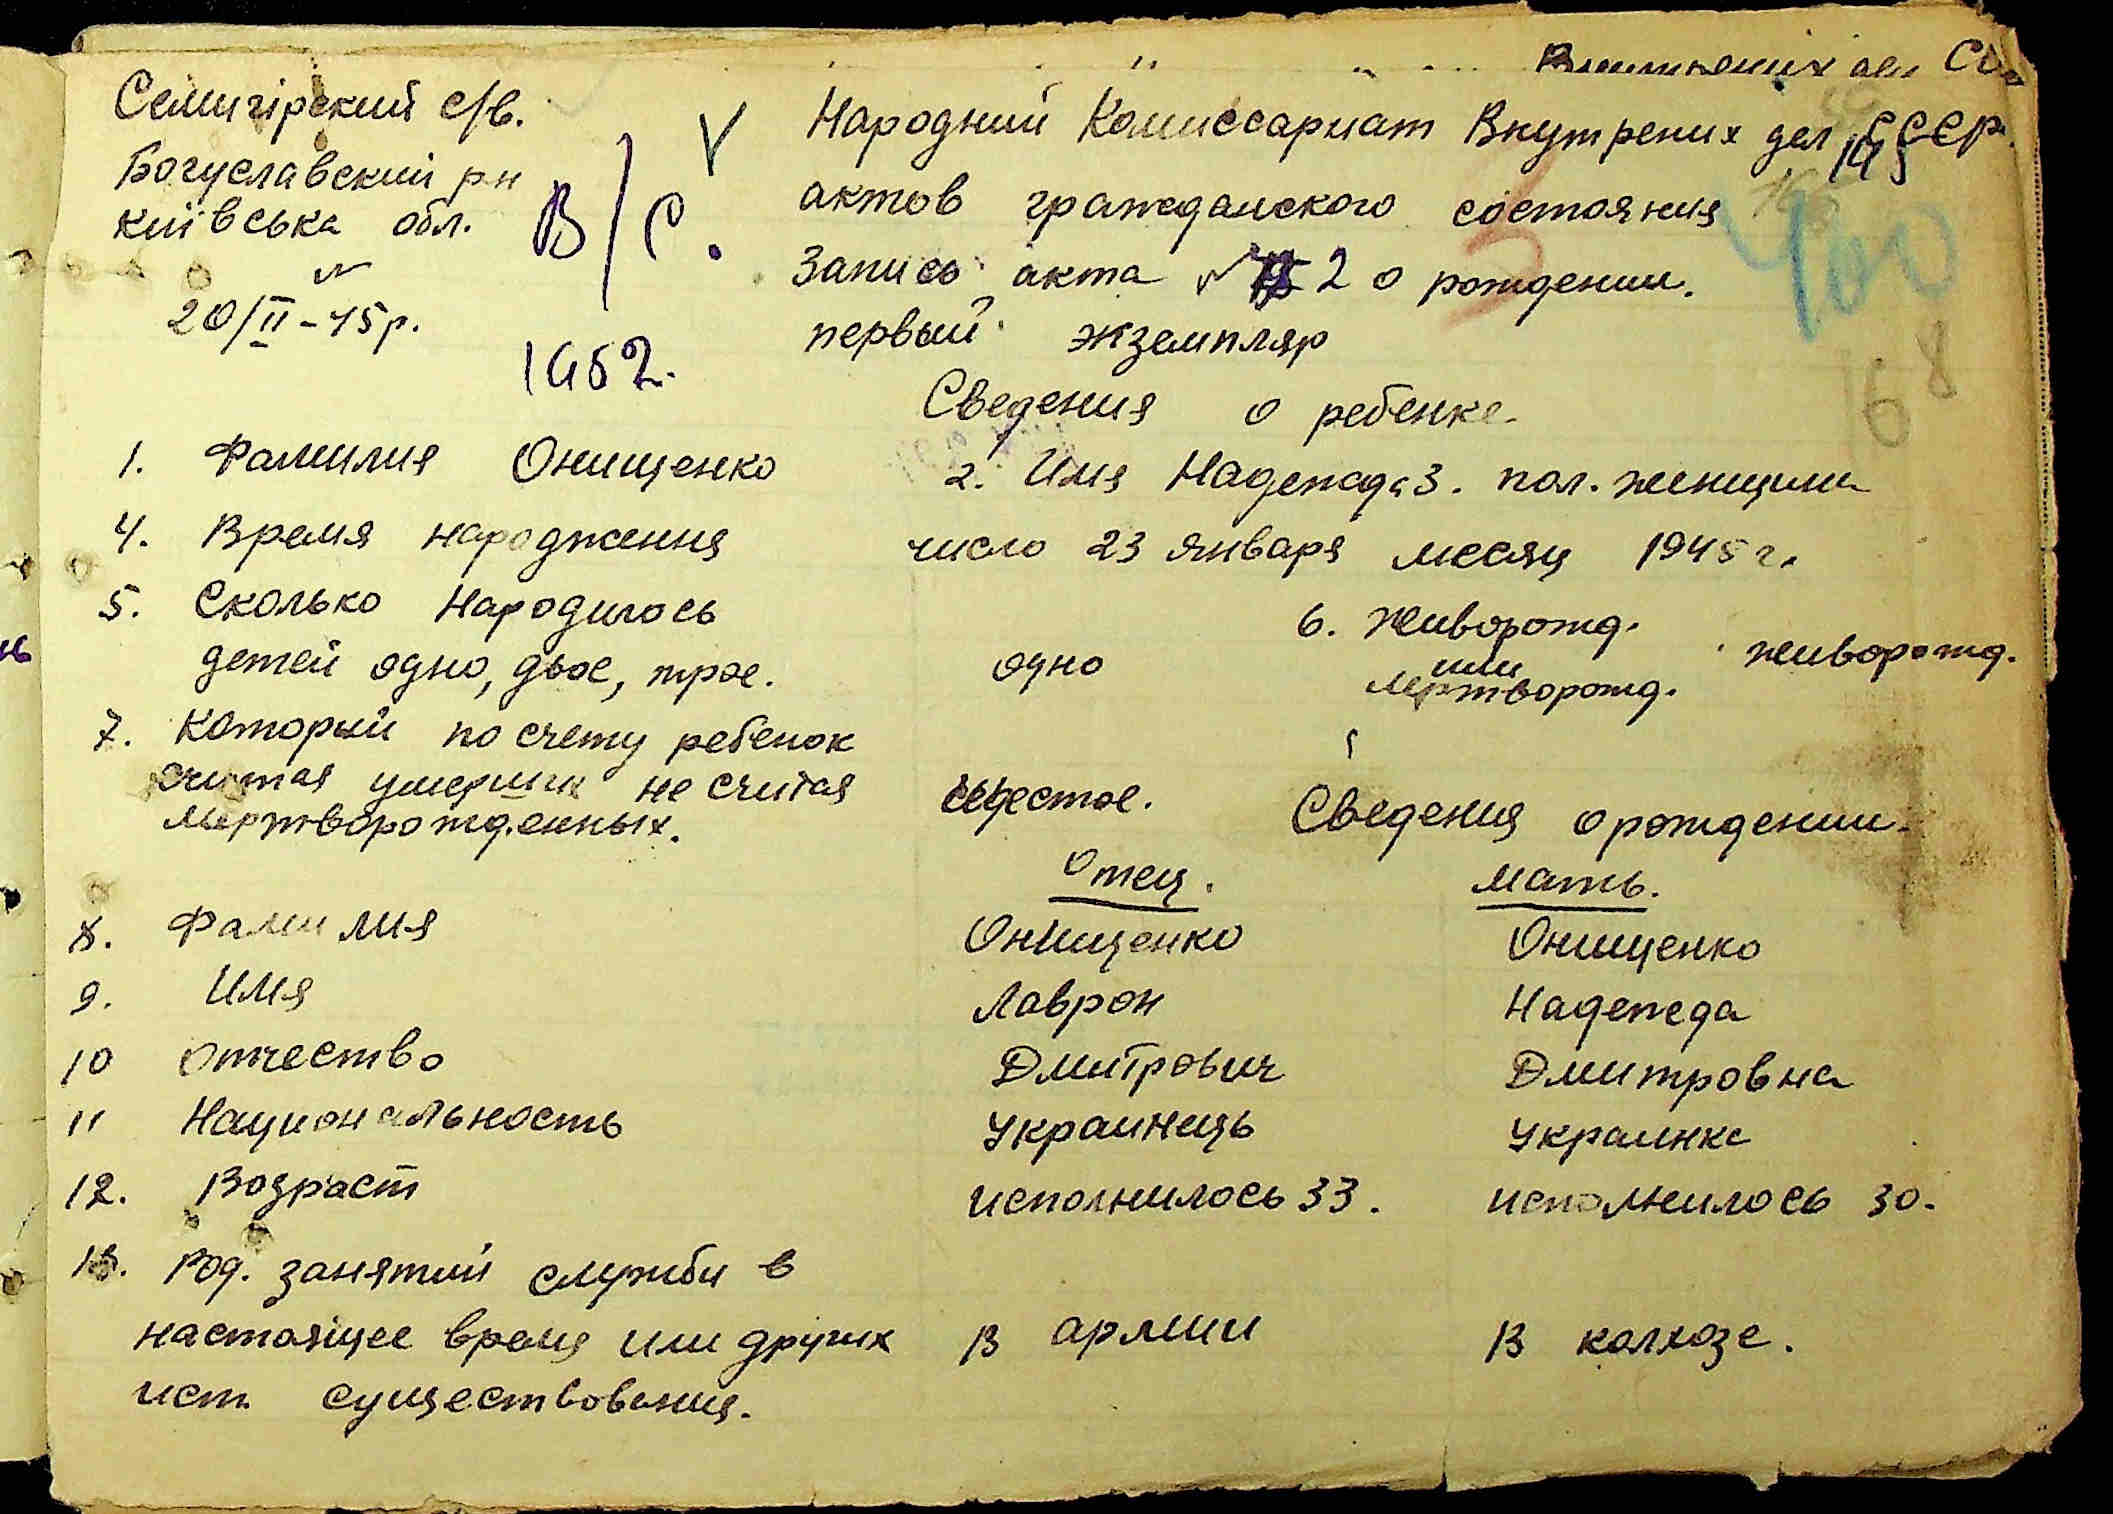 Семигірский с/в.
Богуславский рн
київська обл.
20/II-45р.
В/с.
1952.
Народний Комиссариат Внутрених дел СССР.
актов гражданского состояния
Запись акта № 2 о рождении.
первый экземпляр
400
168
Сведения о ребенке.
1. Фамилия Онищенко 2. Имя Надежда 3. пол. женщина
4. Время народження число 23 января месяц 1945 г.
5. Сколько Народилось
детей одно, двое, трое. одно
6. Живорожд.
или
мертворожд. живорожд.
7. Который по счету ребенок
считая умерших не считая шестое.
мертворожденных.
Сведения о рождении.
Отец. мать.
8. Фамилия Онищенко Онищенко
9. Имя Лаврон Надежда
10 Отчество Дмитрович Дмитровна
11 Национальность Украинець Украинка
12. Возраст исполнилось 33. исполнилось 30.
13. Род. занятий служби в
настоящее время или других В армии В колхозе.
ист. существования.